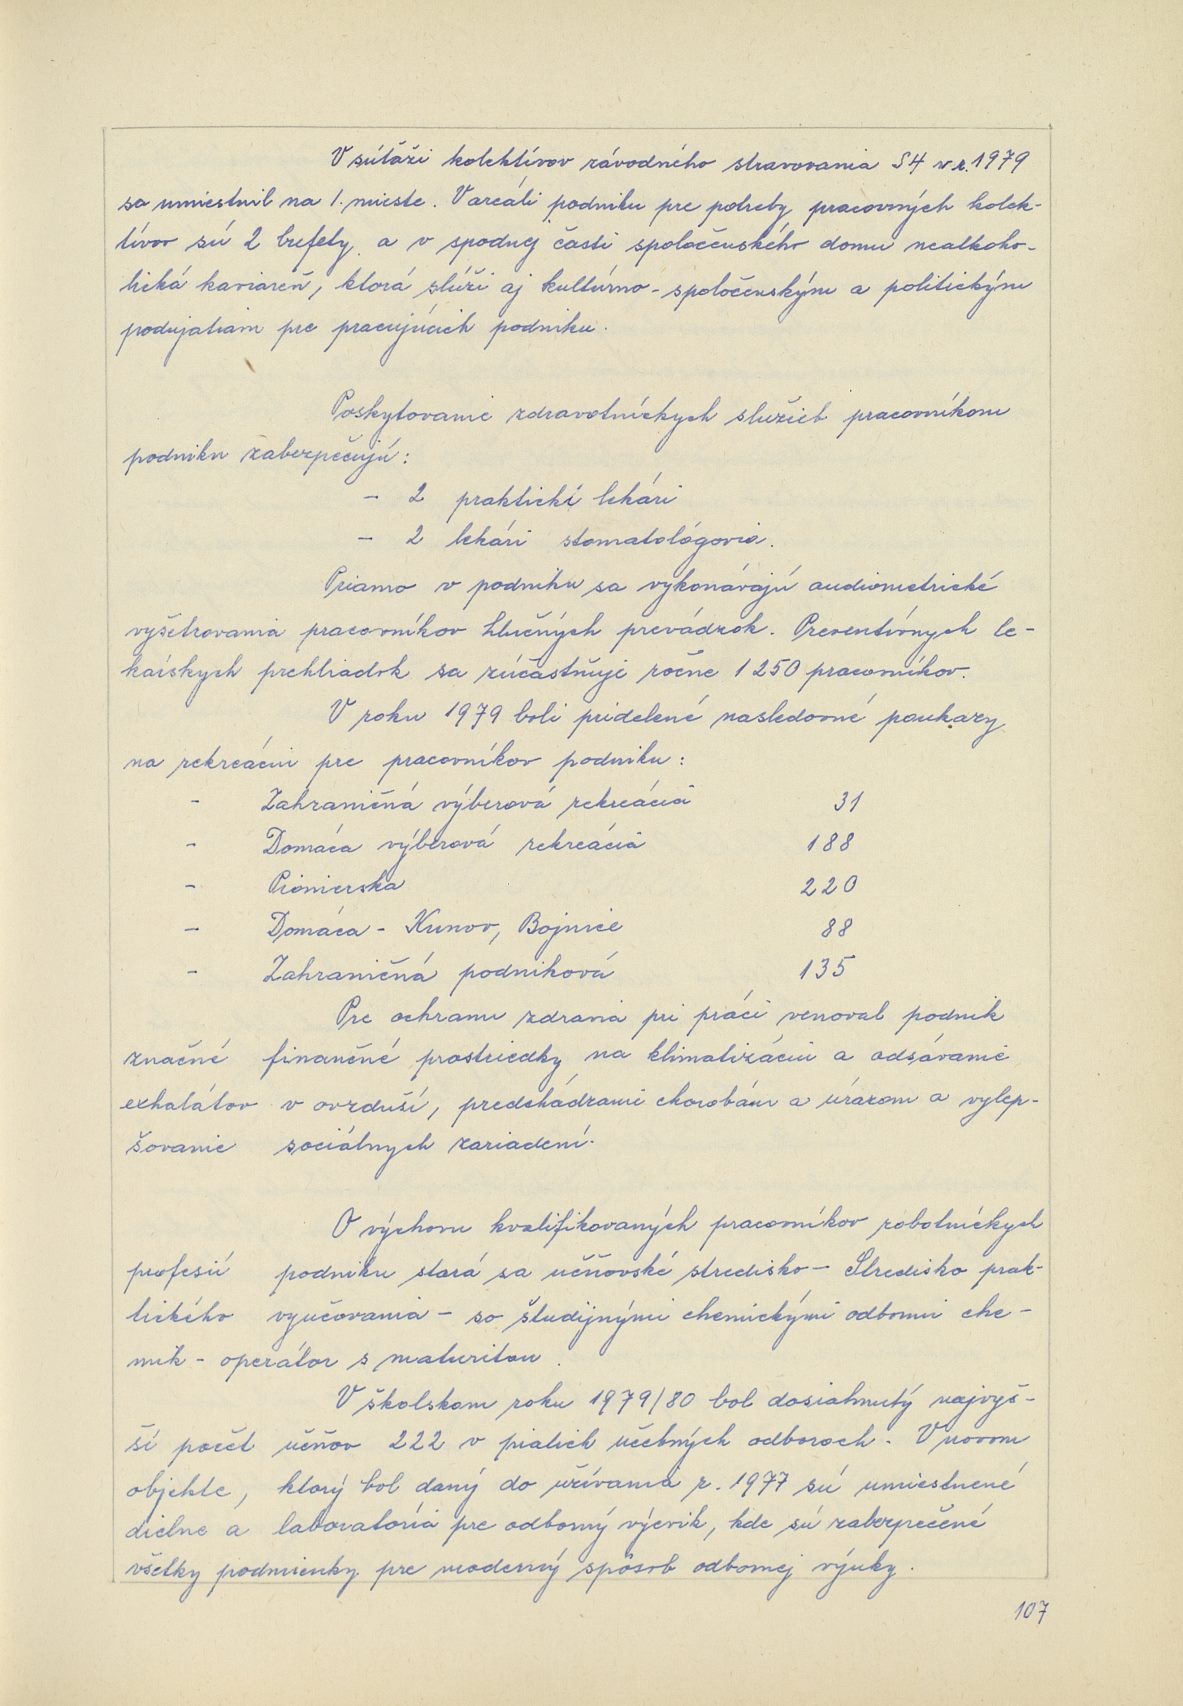 V súťaži kolektívov závodného stravovania S4 v r. 1979
sa umiestnil na 1. mieste. V areáli podniku pre potreby pracovných kolek-
tívov sú 2 bufety a v spodnej časti spoločenského domu nealkoho-
lická kaviareň, ktorá slúži aj kultúrno-spoločenským a politickým
podujatiam pre pracujúcich podniku.
Poskytovanie zdravotníckych služieb pracovníkom
podniku zabezpečujú:
- 2 praktickí lekári
- 2 lekári stomatológovia.
Priamo v podniku sa vykonávajú audiometrické
vyšetrovania pracovníkov hlučných prevádzok. Preventívnych le-
kárskych prehliadok sa zúčastňuje ročne 1 250 pracovníkov.
V roku 1979 boli pridelené nasledovné poukazy
na rekreáciu pre pracovníkov podniku:
- Zahraničná výberová rekreácia 31
- Domáca výberová rekreácia 188
- Pionierska 220
- Domáca - Kunov, Bojnice 88
- Zahraničná podniková 135
Pre ochranu zdravia pri práci venoval podnik
značné finančné prostriedky na klimatizáciu a odsávanie
exhalátov v ovzduší, predchádzanie chorobám a úrazom a vylep-
šovanie sociálnych zariadení.
O výchovu kvalifikovaných pracovníkov robotníckych
profesií podniku stará sa učňovské stredisko - Stredisko prak-
tického vyučovania - so študijnými chemickými odbormi che-
mik - operátor s maturitou.
V školskom roku 1979/80 bol dosiahnutý najvyš-
ší počet učňov 222 v piatich učebných odboroch. V novom
objekte, ktorý bol daný do užívania r. 1977 sú umiestnené
dielne a laboratóriá pre odborný výcvik, kde sú zabezpečené
všetky podmienky pre moderný spôsob odbornej výuky.
107